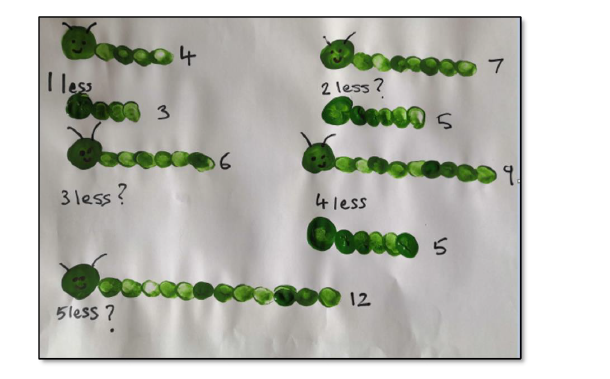 4
1 less
3
6
3 less?
7
2 less?
5
9
4 less
5
12
5 less?